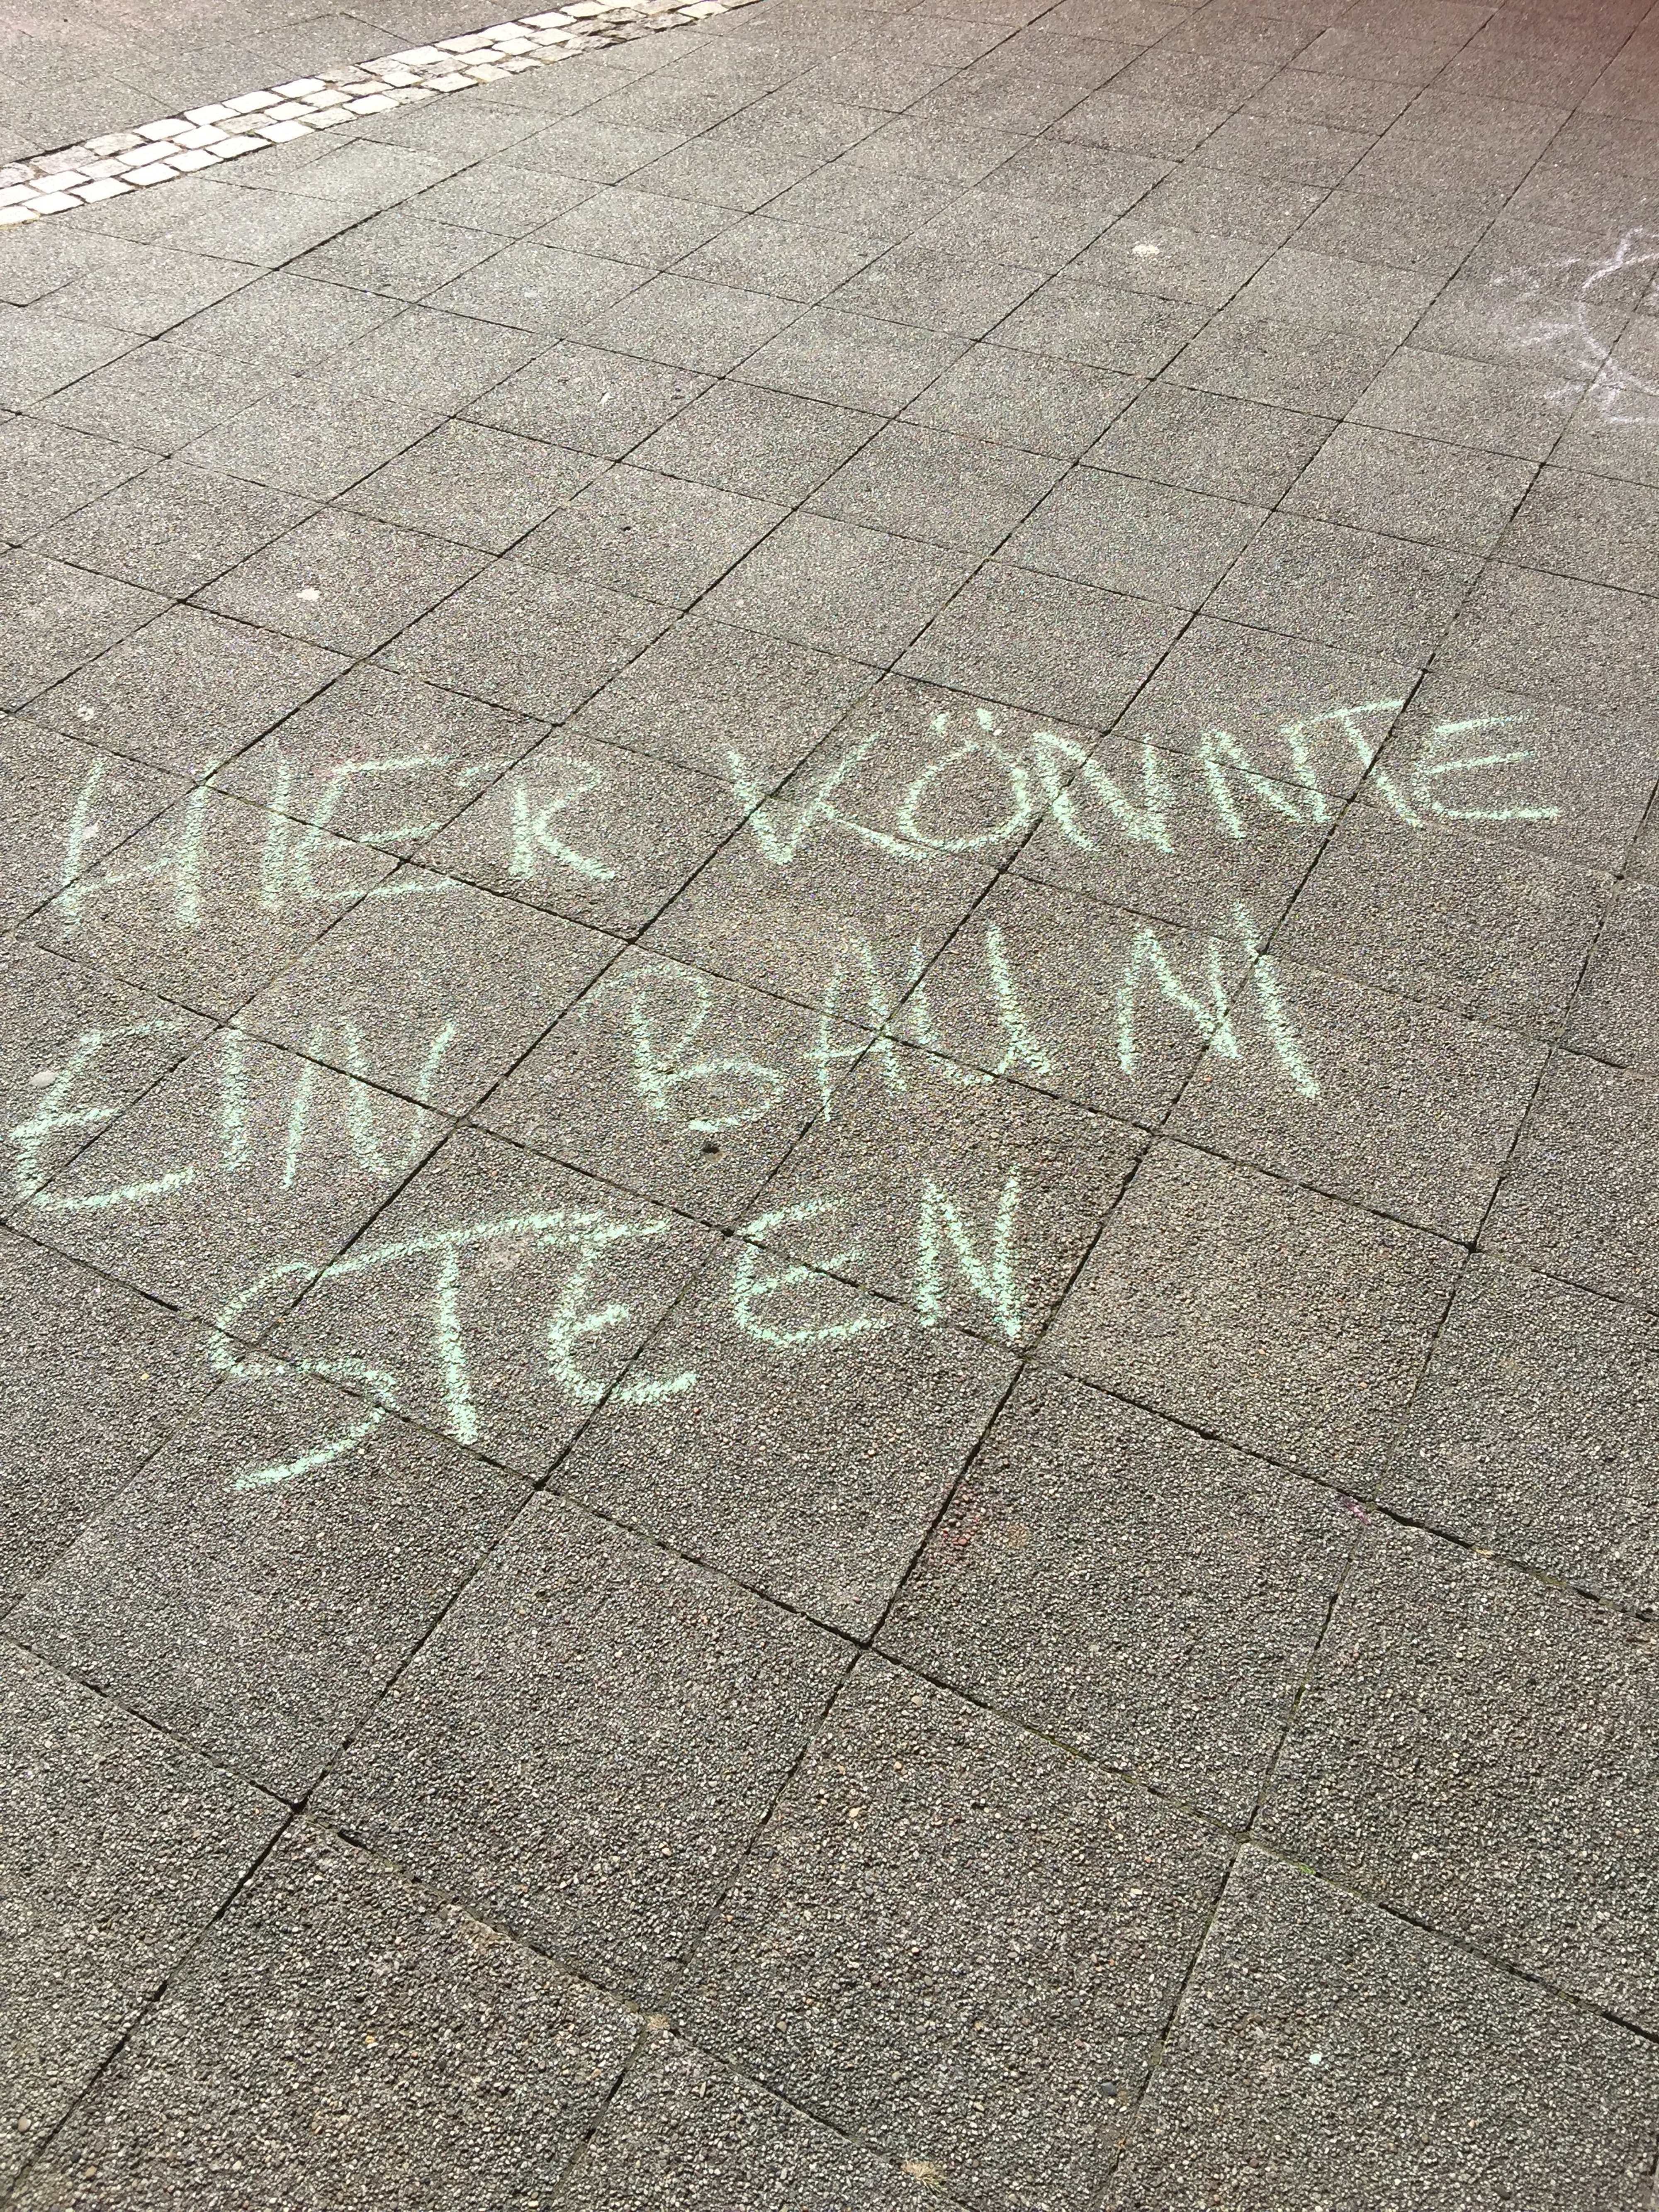 HIER KÖNNTE
EIN BAUM
STEEN